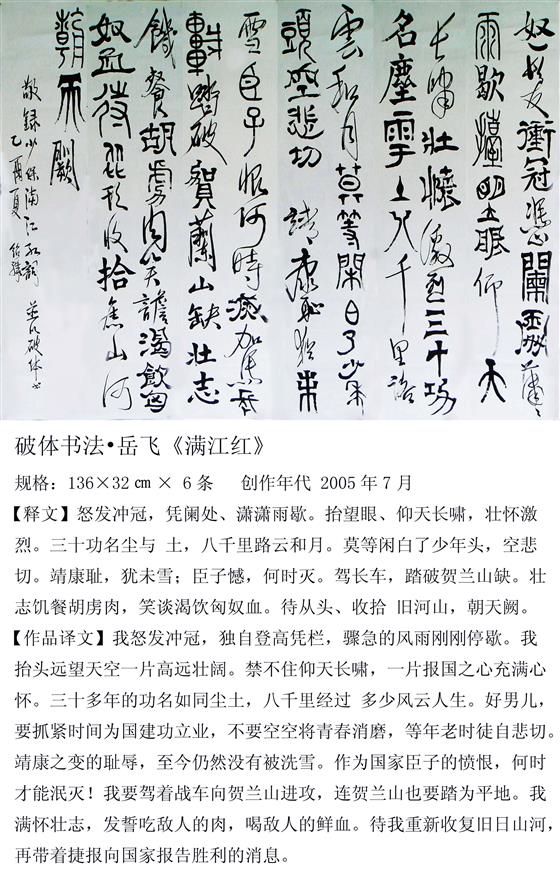 怒髮衝冠憑闌處瀟瀟
雨歇擡望眼仰天
長嘯壯懷激烈三十功
名塵與土八千里路
雲和月莫等閑白了少年
頭空悲切 靖康恥猶未
雪臣子恨何時滅駕長
車踏破賀蘭山缺壯志
饑餐胡虜肉笑談渴飲匈
奴血待從頭收拾舊山河
朝天闕
敬録少保满江红詞 並以破体书
乙酉夏
破体书法•岳飞《满江红》
规格：136×32 ㎝ × 6 条 创作年代 2005 年 7 月
【释文】怒发冲冠，凭阑处、潇潇雨歇。抬望眼、仰天长啸，壮怀激
烈。三十功名尘与 土，八千里路云和月。莫等闲白了少年头，空悲
切。靖康耻，犹未雪；臣子憾，何时灭。驾长车，踏破贺兰山缺。壮
志饥餐胡虏肉，笑谈渴饮匈奴血。待从头、收拾 旧河山，朝天阙。
【作品译文】我怒发冲冠，独自登高凭栏，骤急的风雨刚刚停歇。我
抬头远望天空一片高远壮阔。禁不住仰天长啸，一片报国之心充满心
怀。三十多年的功名如同尘土，八千里经过 多少风云人生。好男儿，
要抓紧时间为国建功立业，不要空空将青春消磨，等年老时徒自悲切。
靖康之变的耻辱，至今仍然没有被洗雪。作为国家臣子的愤恨，何时
才能泯灭！我要驾着战车向贺兰山进攻，连贺兰山也要踏为平地。我
满怀壮志，发誓吃敌人的肉，喝敌人的鲜血。待我重新收复旧日山河，
再带着捷报向国家报告胜利的消息。